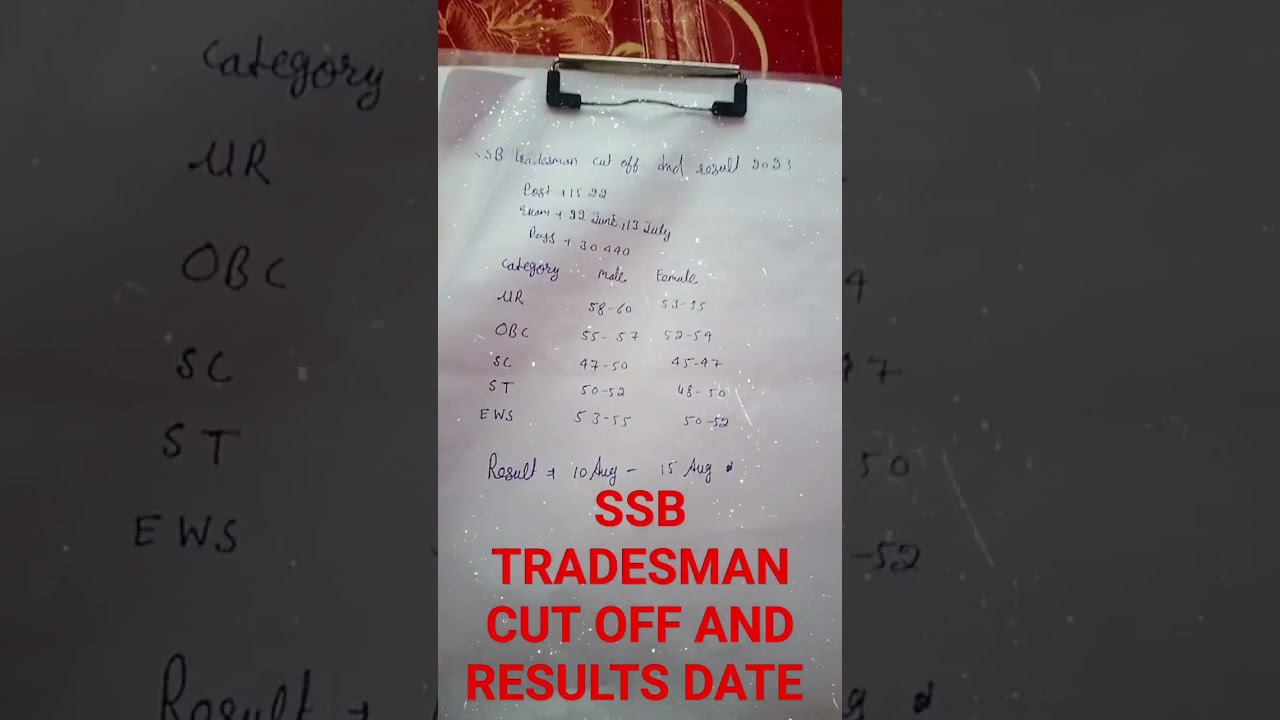 SSB Tradesman cut off and result 2023
Post → 1522
Exam → 22 June, 13 July
Pass → 30440
Category Male Female
UR 58-60 53-55
OBC 55-57 52-54
SC 47-50 45-47
ST 50-52 48-50
EWS 53-55 50-52
Result → 10 Aug - 15 Aug
SSB
TRADESMAN
CUT OFF AND
RESULTS DATE
Category
UR
OBC
SC
ST
EWS
Result →
4
47
50
-52